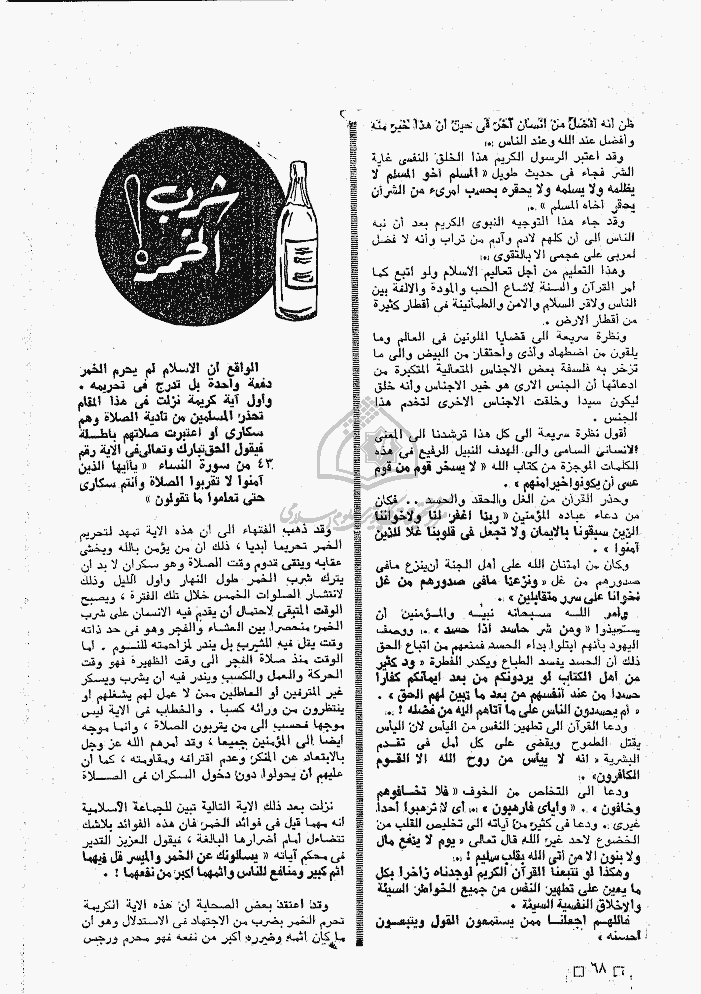 ظن أنه أفضل من انسان آخر فى حين أن هذا خير منه
وأفضل عند الله وعند الناس
وقد اعتبر الرسول الكريم هذا الخلق النفسى غاية
الشر فجاء فى حديث طويل « المسلم أخو المسلم لا
يظلمه ولا يسلمه ولا يحقره بحسب امرىء من الشر أن
يحقر أخاه المسلم » .
وقد جاء هذا التوجيه النبوى الكريم بعد أن نبه
الناس الى أن كلهم لآدم وآدم من تراب وأنه لا فضل
لعربى على عجمى الا بالتقوى
وهذا التعليم من أجل تعاليم الاسلام ولو اتبع كما
أمر القرآن والسنة لاشاع الحب والمودة والالفة بين
الناس ولاقر السلام والامن والطمأنينة فى أقطار كثيرة
من أقطار الارض .
ونظرة سريعة الى قضايا الملونين فى العالم وما
يلقون من اضطهاد وأذى وأحتقار من البيض والى ما
تزخر به فلسفة بعض الاجناس المتعالية المتكبرة من
ادعائها أن الجنس الارى هو خير الاجناس وأنه خلق
ليكون سيدا وخلقت الاجناس الاخرى لتخدم هذا
الجنس .
أقول نظرة سريعة الى كل هذا ترشدنا الى المعنى
الانسانى السامى والى الهدف النبيل الرفيع فى هذه
الكلمات الموجزة من كتاب الله « لا يسخر قوم من قوم
عسى أن يكونوا خيرا منهم » .
وحذر القرآن من الغل والحقد والحسد . . فكان
من دعاء عباده المؤمنين « ربنا اغفر لنا ولاخواننا
الذين سبقونا بالايمان ولا تجعل فى قلوبنا غلا للذين
آمنوا » .
وكان من امتنان الله على أهل الجنة أن ينزع ما فى
صدورهم من غل « ونزعنا ما فى صدورهم من غل
اخوانا على سرر متقابلين » .
وأمر الله سبحانه نبيه والمؤمنين أن
يستعيذوا « ومن شر حاسد اذا حسد » . ووصف
اليهود بأنهم ابتلوا بداء الحسد فمنعهم من اتباع الحق
ذلك أن الحسد يفسد الطباع ويكدر الفطرة « ود كثير
من أهل الكتاب لو يردونكم من بعد ايمانكم كفارا
حسدا من عند أنفسهم من بعد ما تبين لهم الحق » .
« أم يحسدون الناس على ما آتاهم الله من فضله » !
ودعا القرآن الى تطهير النفس من اليأس لان اليأس
يقتل الطموح ويقضى على كل أمل فى تقدم
البشرية « انه لا ييأس من روح الله الا القوم
الكافرون»
ودعا الى التخلص من الخوف « فلا تخافوهم
وخافون » . « واياى فارهبون » أى لا ترهبوا أحدا
غيرى . ودعا فى كثير من آياته الى تخليص القلب من
الخضوع لاحد غير الله قال تعالى « يوم لا ينفع مال
ولا بنون الا من أتى الله بقلب سليم » !
وهكذا لو تتبعنا القرآن الكريم لوجدناه زاخرا بكل
ما يعين على تطهير النفس من جميع الخواطر السيئة
والاخلاق النفسية السيئة .
فاللهم اجعلنا ممن يستمعون القول ويتبعون
أحسنه »
شرب
الخمر !
الواقع أن الاسلام لم يحرم الخمر
دفعة واحدة بل تدرج فى تحريمه .
وأول آية كريمة نزلت فى هذا المقام
تحذر المسلمين من تأدية الصلاة وهم
سكارى أو اعتبرت صلاتهم باطلة
فيقول الحق تبارك وتعالى فى الآية رقم
٤٣ من سورة النساء « يأأيها الذين
آمنوا لا تقربوا الصلاة وأنتم سكارى
حتى تعلموا ما تقولون »
وقد ذهب الفقهاء الى أن هذه الآية تمهد لتحريم
الخمر تحريما أبديا ، ذلك أن من يؤمن بالله ويخشى
عقابه ويتقى قدوم وقت الصلاة وهو سكران لا بد أن
يترك شرب الخمر طول النهار وأول الليل وذلك
لانتشار الصلوات الخمس خلال تلك الفترة ، ويصبح
الوقت المتبقى لاحتمال أن يقدم فيه الانسان على شرب
الخمر منحصرا بين العشاء والفجر وهو فى حد ذاته
وقت يقل فيه الشرب بل يندر لمزاحمته للنوم . أما
الوقت منذ صلاة الفجر الى وقت الظهيرة فهو وقت
الحركة والعمل والكسب ويندر فيه أن يشرب ويسكر
غير المترفين أو العاطلين ممن لا عمل لهم يشغلهم أو
ينتظرون من ورائه كسبا . والخطاب فى الآية ليس
موجها فحسب الى من يقربون الصلاة ، وانما موجه
أيضا الى المؤمنين جميعا ، وقد أمرهم الله عز وجل
بالابتعاد عن المنكر وعدم اقترافه ومقاومته ، كما أن
عليهم أن يحولوا دون دخول السكران فى الصلاة
نزلت بعد ذلك الآية التالية تبين للجماعة الاسلامية
أنه مهما قيل فى فوائد الخمر فان هذه الفوائد بلاشك
تتضاءل أمام أضرارها البالغة ، فيقول العزيز القدير
فى محكم آياته « يسألونك عن الخمر والميسر قل فيهما
اثم كبير ومنافع للناس واثمهما أكبر من نفعهما ! .
وقد اعتقد بعض الصحابة أن هذه الآية الكريمة
تحرم الخمر بضرب من الاجتهاد فى الاستدلال وهو أن
ما كان اثمه وضرره أكبر من نفعه فهو محرم ورجس
٦٨